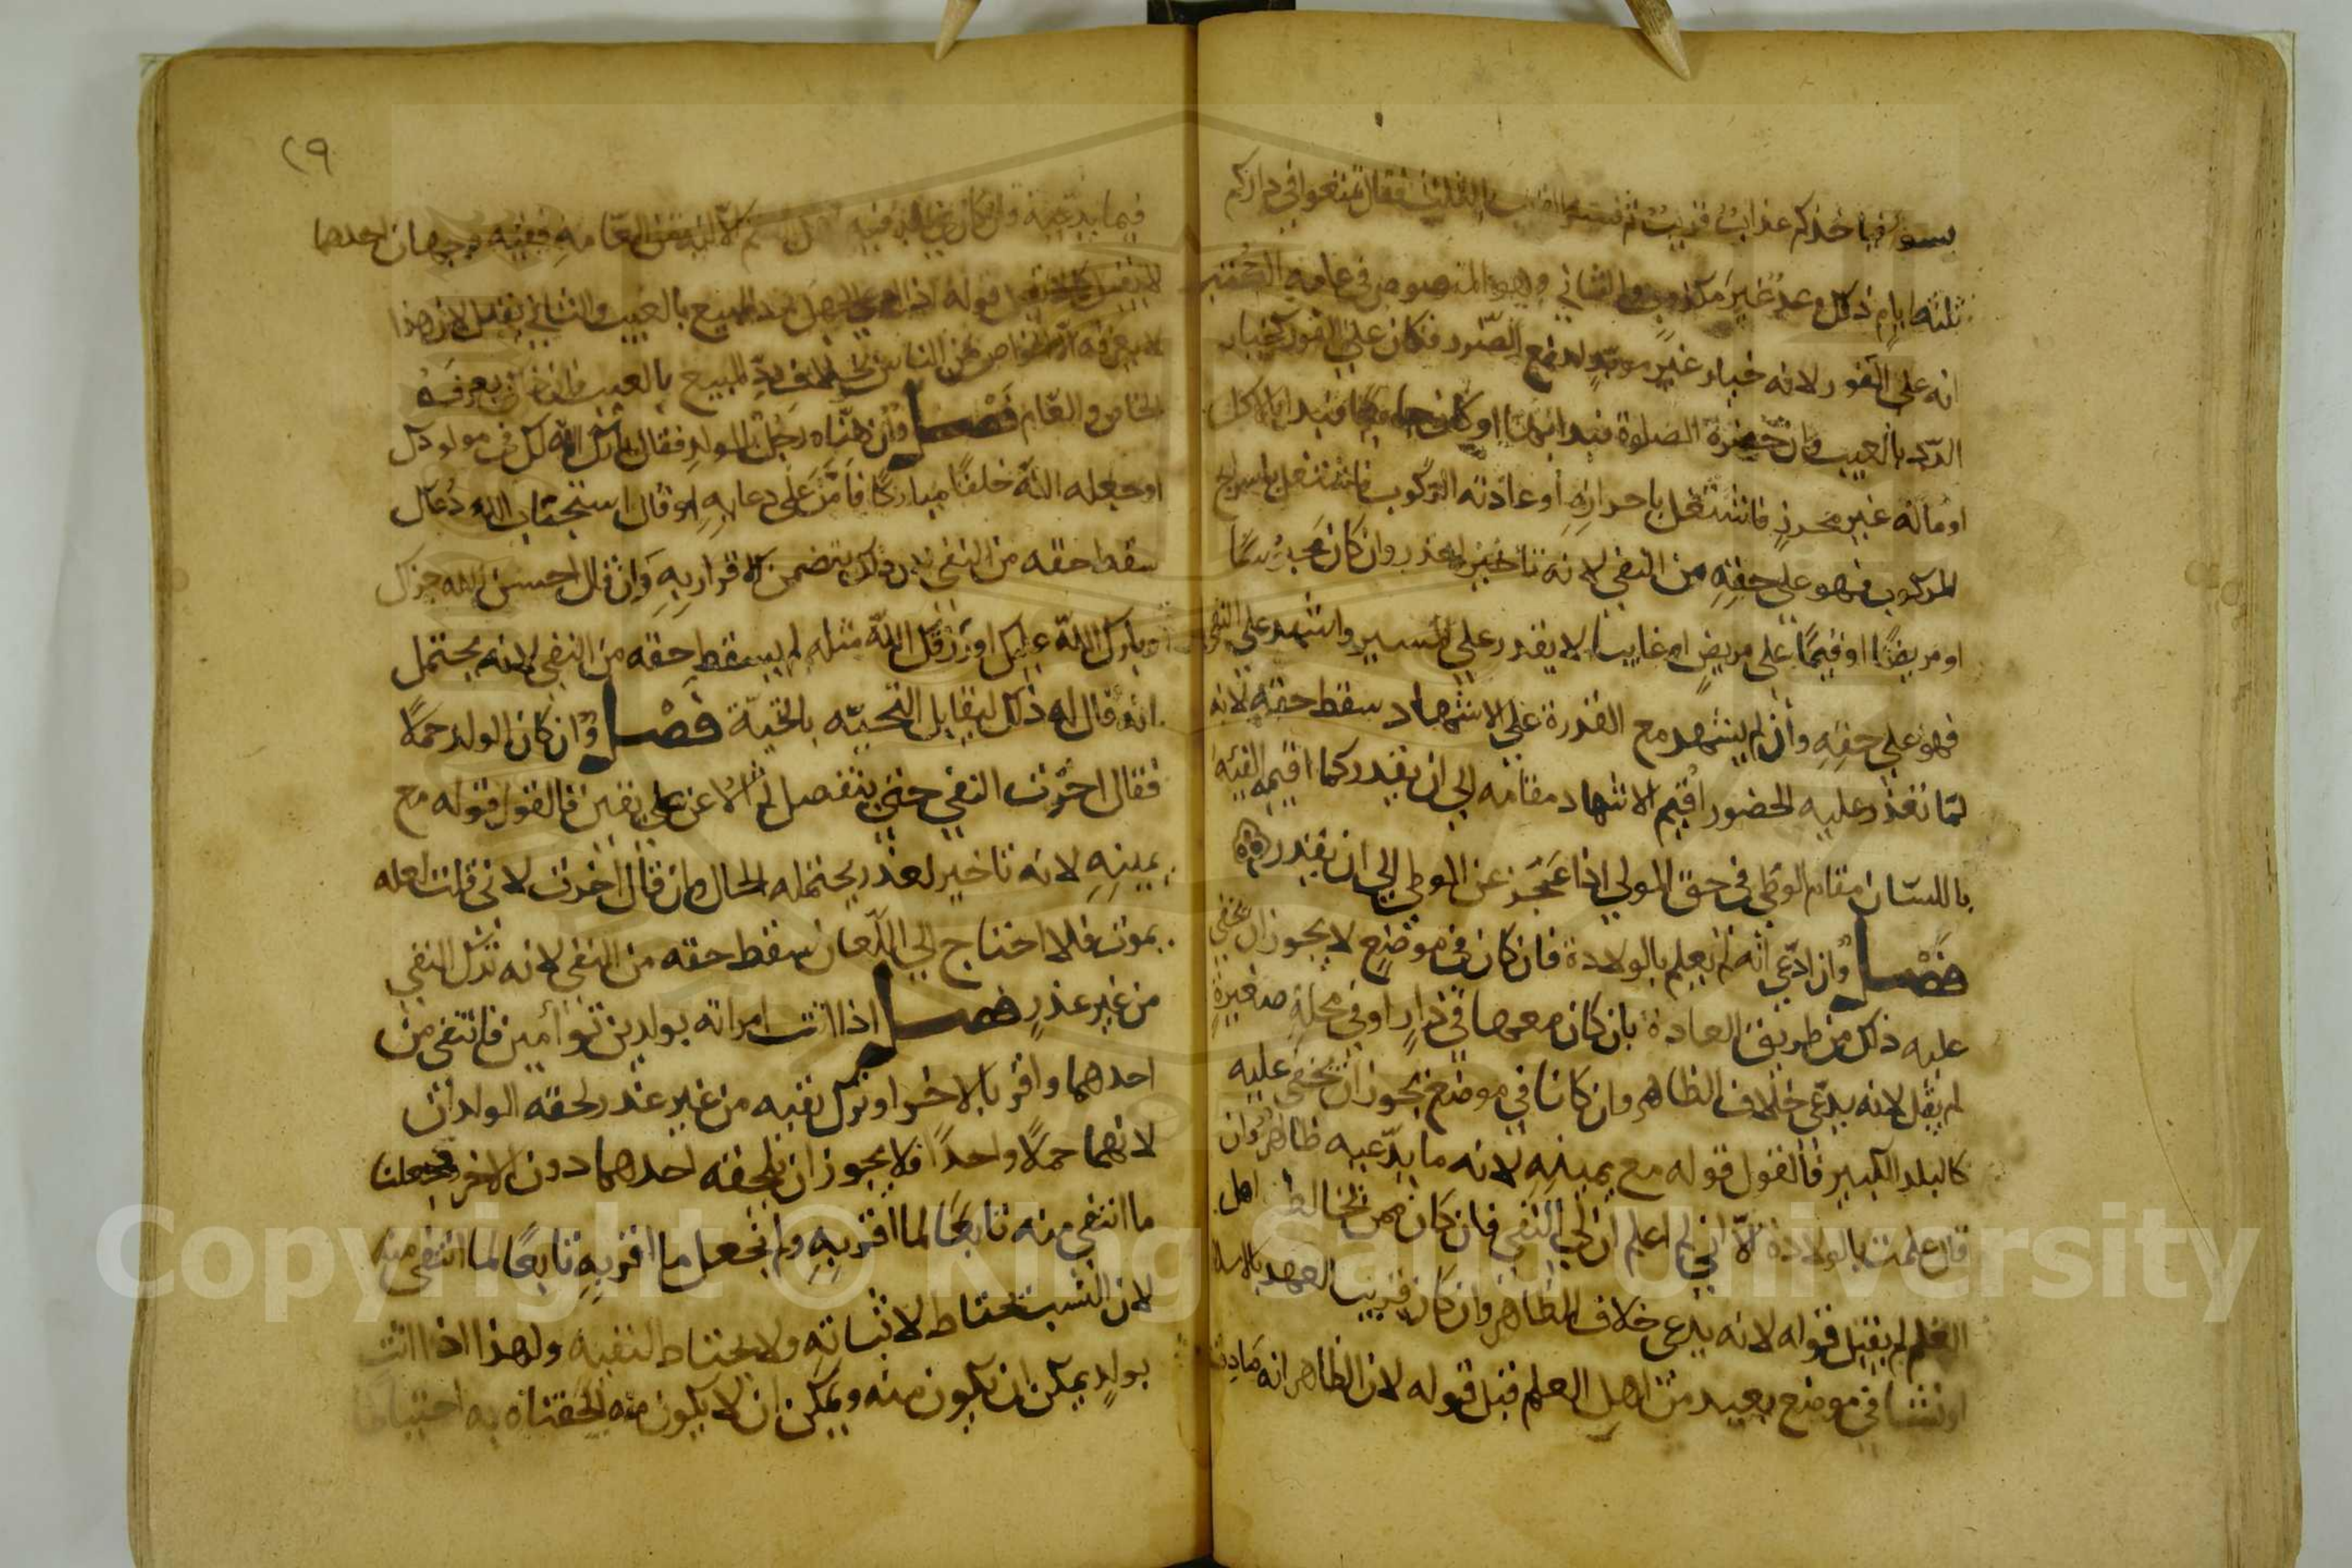 بسوء فياخذكم عذاب قريب ثم فسر القريب بالثلث فقال تمتعوا في داركم
ثلثة ايام ذلك وعد غير مكذوب والثاني وهو المنصوص في عامة الكتب
انه على الفور لانه خيار غير موبد لدفع الضرر فكان على الفور كخيار
الرد بالعيب وان حضرة الصلوة فبدا بها او كان جايعا فبدا بالاكل
او ماله غير محرز فاشتغل باحرازه او عادته الركوب فاشتغل باسراج
المركوب فهو على حقه من النفي لانه تاخير لعذر وان كان محبوسا
او مريضا او قيما على مريض او غايبا لا يقدر على المسير واشهد على النفي
فهو على حقه وان لم يشهد مع القدرة على الاشهاد سقط حقه لانه
لما تعذر عليه الحضور اقيم الاشهاد مقامه الى ان يقدر كما اقيم الفيئه
باللسان مقام الوطي في حق المولي اذا عجز عن الوطي الى ان يقدر
فصل وان ادعى انه لم يعلم بالولادة فان كان في موضع لا يجوز ان يخفي
عليه ذلك من طريق العادة بان كان معها في دار او في محلة صغيرة
لم يقبل لانه يدعي خلاف الظاهر وان كانا في موضع يجوز ان يخفي عليه
كالبلد الكبير فالقول قوله مع يمينه لانه ما يدعيه ظاهر وان
قال علمت بالولادة الا اني لم اعلم ان لي النفي فان كان ممن يخالط اهل
العلم لم يقبل قوله لانه يدعي خلاف الظاهر وان كان قريب العهد بالاسلا
او نشا في موضع بعيد من اهل العلم قبل قوله لان الظاهر انه صادق
٢٩
فيما يدعيه وان كان في بلد فيه اهل العلم الا انه من العامه ففيه وجهان احدهما
لا يقبل كما لا يقبل قوله اذا ادعى الجهل برد المبيع بالعيب والثاني يقبل لان هذا
لا يعرفه الا الخواص من الناس بخلاف رد المبيع بالعيب فان ذلك يعرفه
الخاص والعام فصل وان هناه رجل بالولد فقال بارك الله لك في مولودك
او جعله الله خلفا مباركا فامن على دعايه او قال استجاب الله دعاك
سقط حقه من النفي لان ذلك يتضمن الاقرار به وان قال احسن الله جزاك
او بارك الله عليك او رزقك الله مثله لم يسقط حقه من النفي لانه يحتمل
انه قال له ذلك ليقابل التحيه بالتحية فصل وان كان الولد حملا
فقال اخرت النفي حتى ينفصل ثم الاعن على يقين فالقول قوله مع
يمينه لانه تاخير لعذر يحتمله الحال وان قال اخرت لاني قلت لعله
يموت فلا احتاج الى اللعان سقط حقه من النفي لانه ترك النفي
من غير عذر فصل اذا اتت امراته بولدين توامين فانتفى من
احدهما واقر بالاخر او ترك نفيه من غير عذر لحقه الولدان
لانهما حملا واحدا فلا يجوز ان يلحقه احدهما دون الاخر وجعلنا
ما انتفي منه تابعا لما اقر به ولم نجعل ما اقر به تابعا لما انتفى منه
لان النسب يحتاط لاثباته ولا يحتاط لنفيه ولهذا اذا اتت
بولد يمكن ان يكون منه ويمكن ان لا يكون منه الحقناه به احتياطا
Copyright © King Saud University